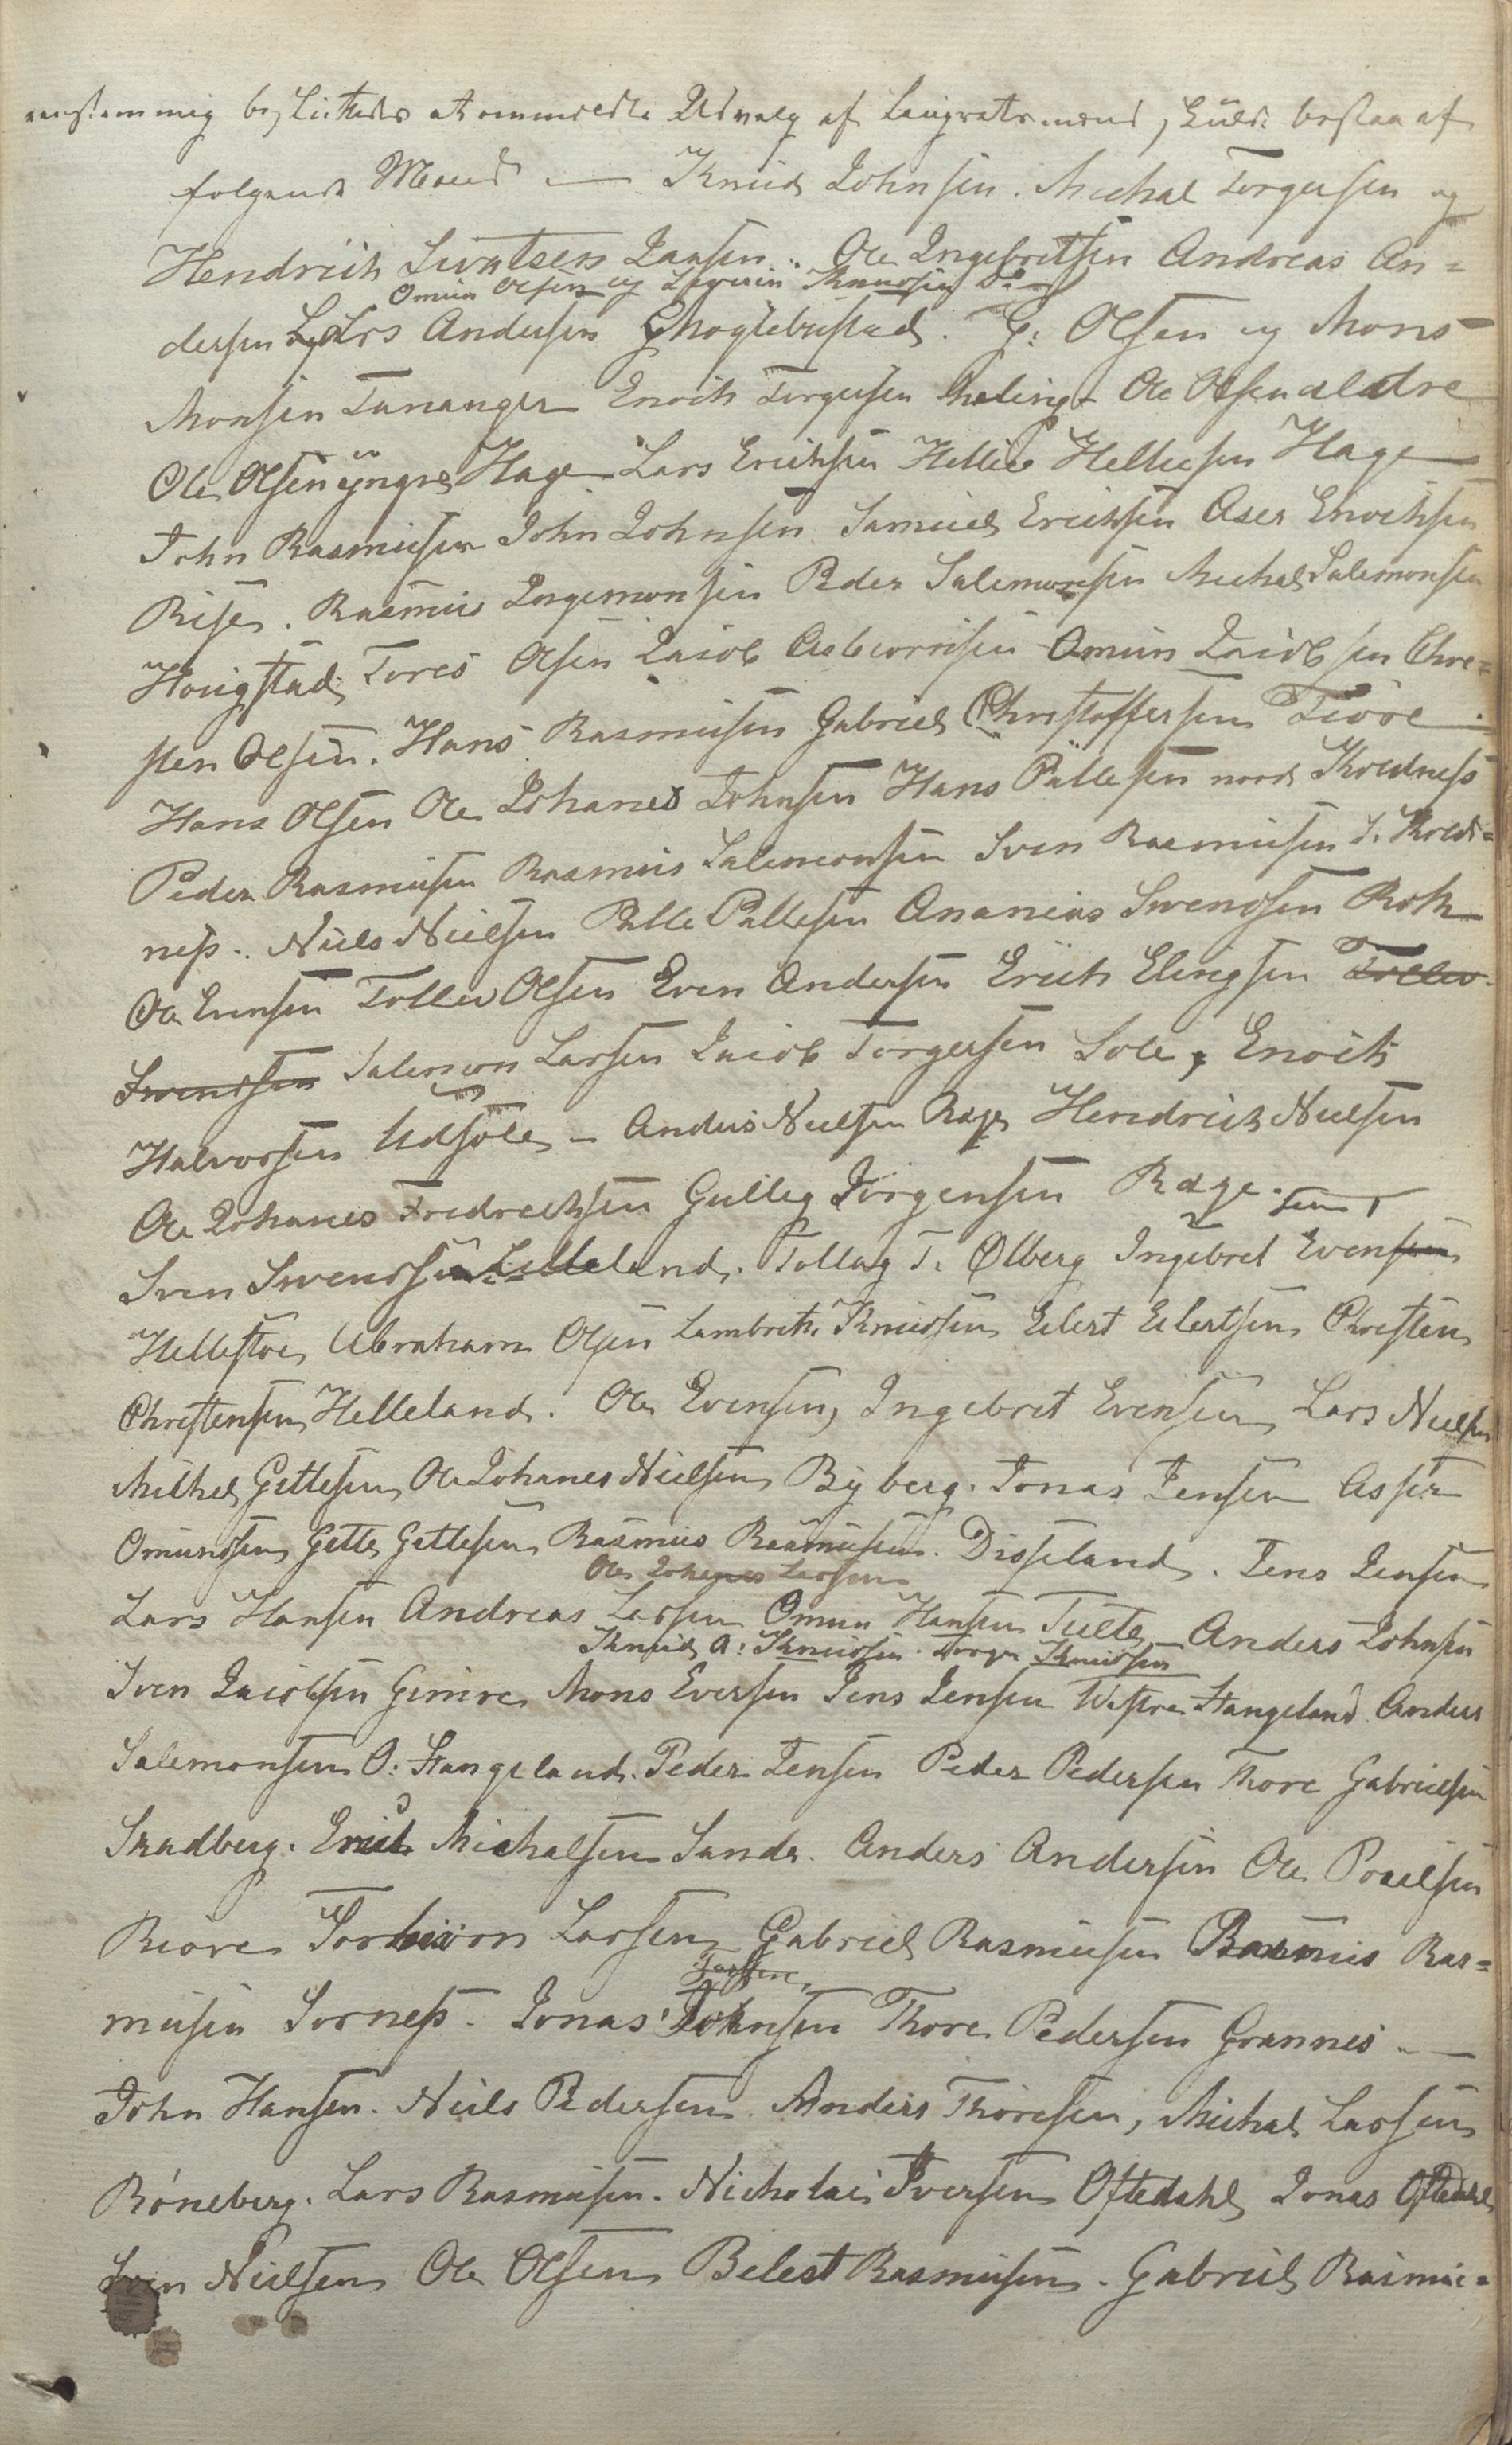 eenstemmig besluttedes at ommeldte Udvalg af Laugretsmænd skulde bestaa af
følgende Mænd — Knud Johnsen. Michal Torgersen og
Hendrich Sivertsen Jaasen. Ole Ingebretsen Andreas An=
Omun Olsen og Knudsen Do
dersen Lars Andersen Olsen og Mons
Monsen Tananger Enoch Torgersen Meling Ole Olsen ældre
Ole Olsen ÿngre Hage Lars Erichsen Hellie Helliesen Hage
John Rasmusen John Johnsen Samuel Erichsen Aser Enochsen
Risa. Rasmus Ingemonsen Peder Salemonsen Michal Salemonsen
Hougstad Tores Olsen Jacob Asbiørnsen Omun Jacobsen Chre=
sten Olsen. Hans Rasmusen Gabriel Christoffersen Tiøre.
Hans Olsen Ole Johanes Johnsen Hans Pallesen nord Koldness
Peder Rasmusen Rasmus Salemonsen Sven Rasmusen S. Kold=
ness. Niels Nielsen Palle Pallesen Ananias Svendsen Roth
Ole Evensen Tollev Olsen Even Andersen Erich Elingsen Tollev
Svendsen Salemon Larsen Jacob Torgersen Sole, Enoch
Halvorsen Udsole — Anders Nielsen Rege Hendrich Nielsen
Ole Johanes Fredrechsen Gulleg Jørgensen Rege.
Sven Svendsen Lilleland. Tollag T. Ølberg Ingebret Evensen
Hellestøe Abraham Olsen Lambreth Knudsen Eilert Eilertsen Christen
Christensen Helleland. Ole Evensen, Ingebret Evensen Lars Nielsen
Michel Gittlesen Ole Johanes Nielsen Byberg. Jonas Jensen Asser
Omundsen Gitle Gitlesen Rasmus Rasmusen. Diseland. Jens Jensen
Ole Johanes Larsen
Lars Hansen Andreas Larsen Omun Hansen Tielte Anders Johnsen
Knud A: Knudsen. Torger Knudsen
Sven Jacobsen Gimre Mons Eversen Jens Jensen Westre Stangeland Anders
Salemonsen O: Stangeland. Peder Jensen Peder Pedersen Thore Gabrielsen
Skadberg. Erich Michalsen Sande. Anders Andersen Ole Povelsen
Riore Torbiørn Larsen Gabriel Rasmusen Rasmus Ras=
musen Sorness. Jonas Johnsen Thore Pedersen Grannes —
John Hansen. Niels Pedersen. Anders Thoresen, Michal Larsen
Røneberg. Lars Rasmusen. Nicholai Iversen Oftedahl Jonas Oftedahl
Sven Nielsen Ole Olsen Belest Rasmusen. Gabriel Rasmu=